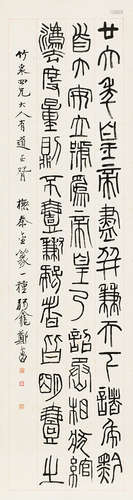 廿六年皇帝盡并兼天下諸侯黔
首大安立號為皇帝乃詔丞相狀綰
灋度量則不壹歉疑者皆明壹之
竹泉四兄大人有道正 橅秦金篆一種 鄭